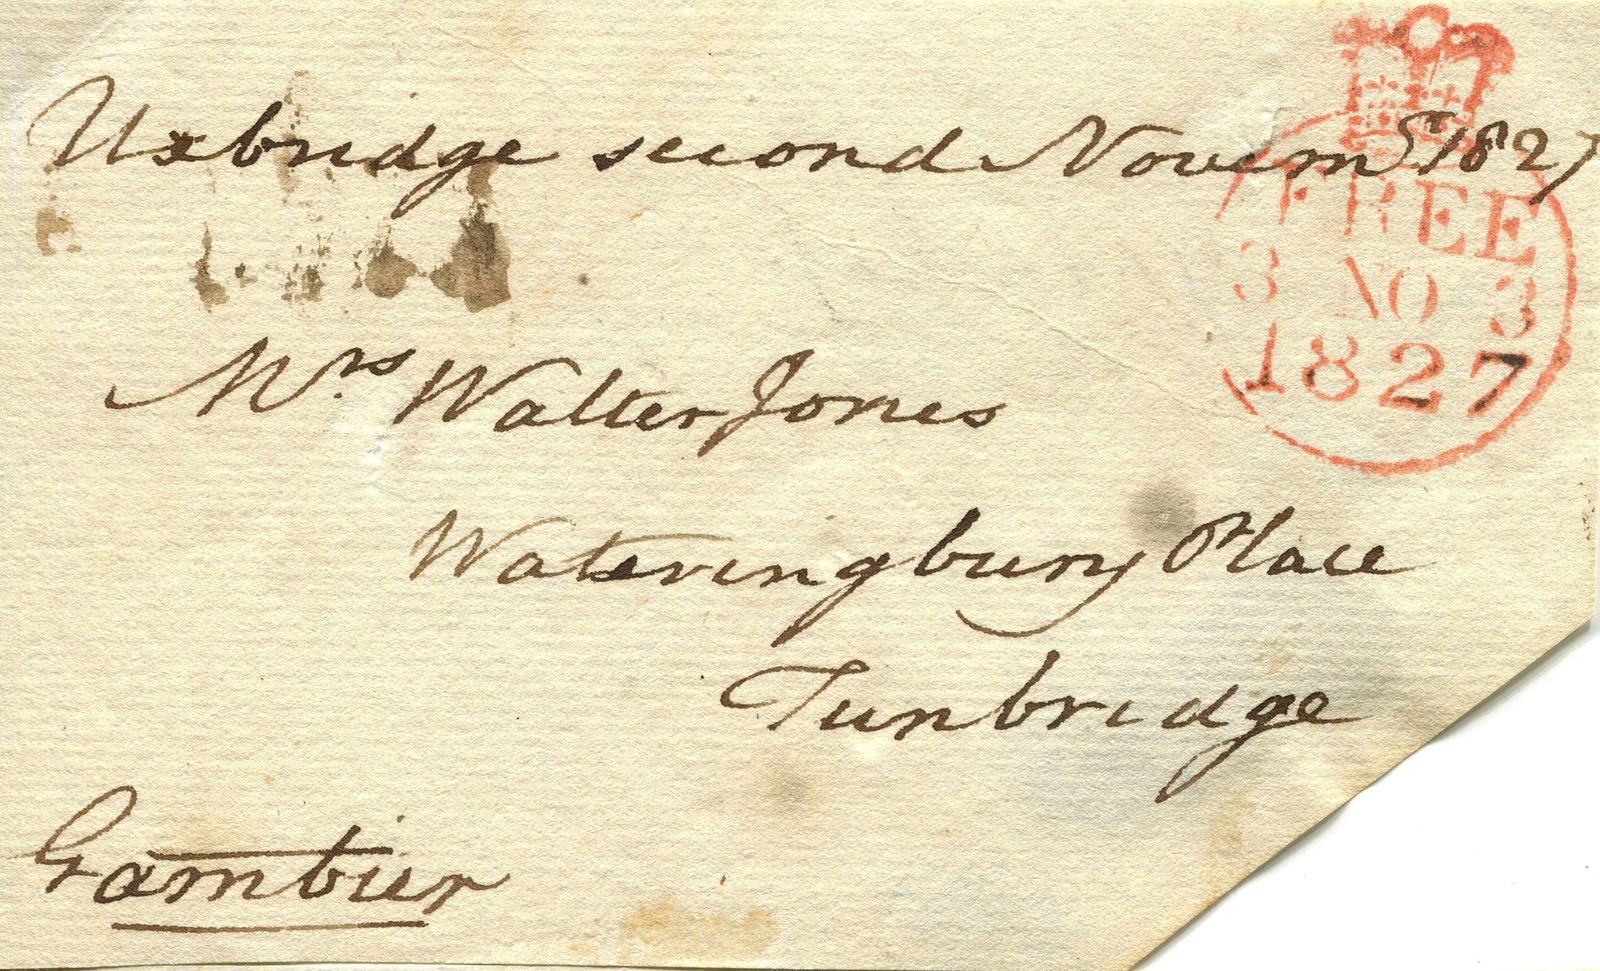 Uxbridge second Novemr 1827
FREE
3 NO 3
1827
Mrs. Walter Jones
Wateringbury Place
Tunbridge
Gambier